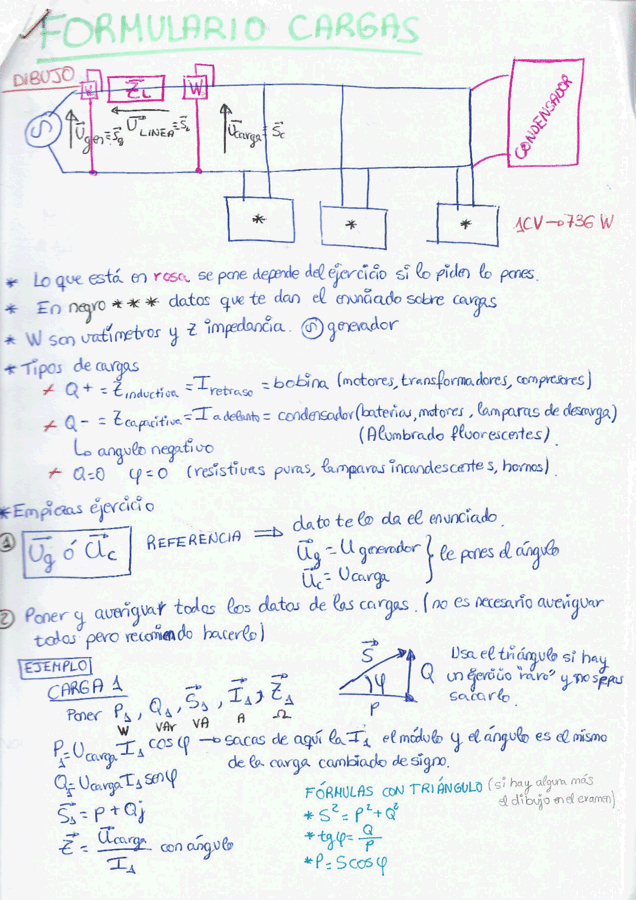 FORMULARIO CARGAS
DIBUJO
W Z̄L W
Ūgen≡S̄g ŪLINEA≡S̄L Ūcarga≡S̄c
CONDENSADOR
* * *
1CV→736 W
* Lo que está en rosa se pone depende del ejercicio si lo piden lo pones.
* En negro *** datos que te dan el enunciado sobre cargas
* W son vatímetros y Z impedancia. generador
* Tipos de cargas
* Q+ = Z̄inductiva = Iretraso = bobina (motores, transformadores, compresores)
* Q- = Zcapacitiva = Iadelanto = condensador (baterias, motores, lamparas de descarga)
(Alumbrado fluorescentes)
Lo angulo negativo
* Q=0 φ=0 (resistivas puras, lamparas incandescentes, hornos).
* Empiezas ejercicio
1 Ūg ó Ūc REFERENCIA ⇒ dato te lo da el enunciado.
Ūg = U generador } le pones el ángulo
Ūc = Ucarga
2 Poner y averiguar todos los datos de las cargas. (no es necesario averiguar
todos pero recomiendo hacerlo)
EJEMPLO
CARGA 1
Poner P1, Q1, S̄1, Ī1, Z̄1
W VAr VA A Ω
S̄ Q φ P
Usa el triángulo si hay
un ejercicio "raro" y no sepas
sacarlo.
P1=Ucarga I1 cosφ → sacas de aquí la I1 el módulo y el ángulo es el mismo
de la carga cambiado de signo.
Q1=Ucarga I1 senφ
S̄1 = P + Qj
Z̄ = Ūcarga / I1 con ángulo
FÓRMULAS CON TRIÁNGULO (si hay alguna más
el dibujo en el examen)
* S² = P² + Q²
* tgφ = Q/P
* P = S cosφ